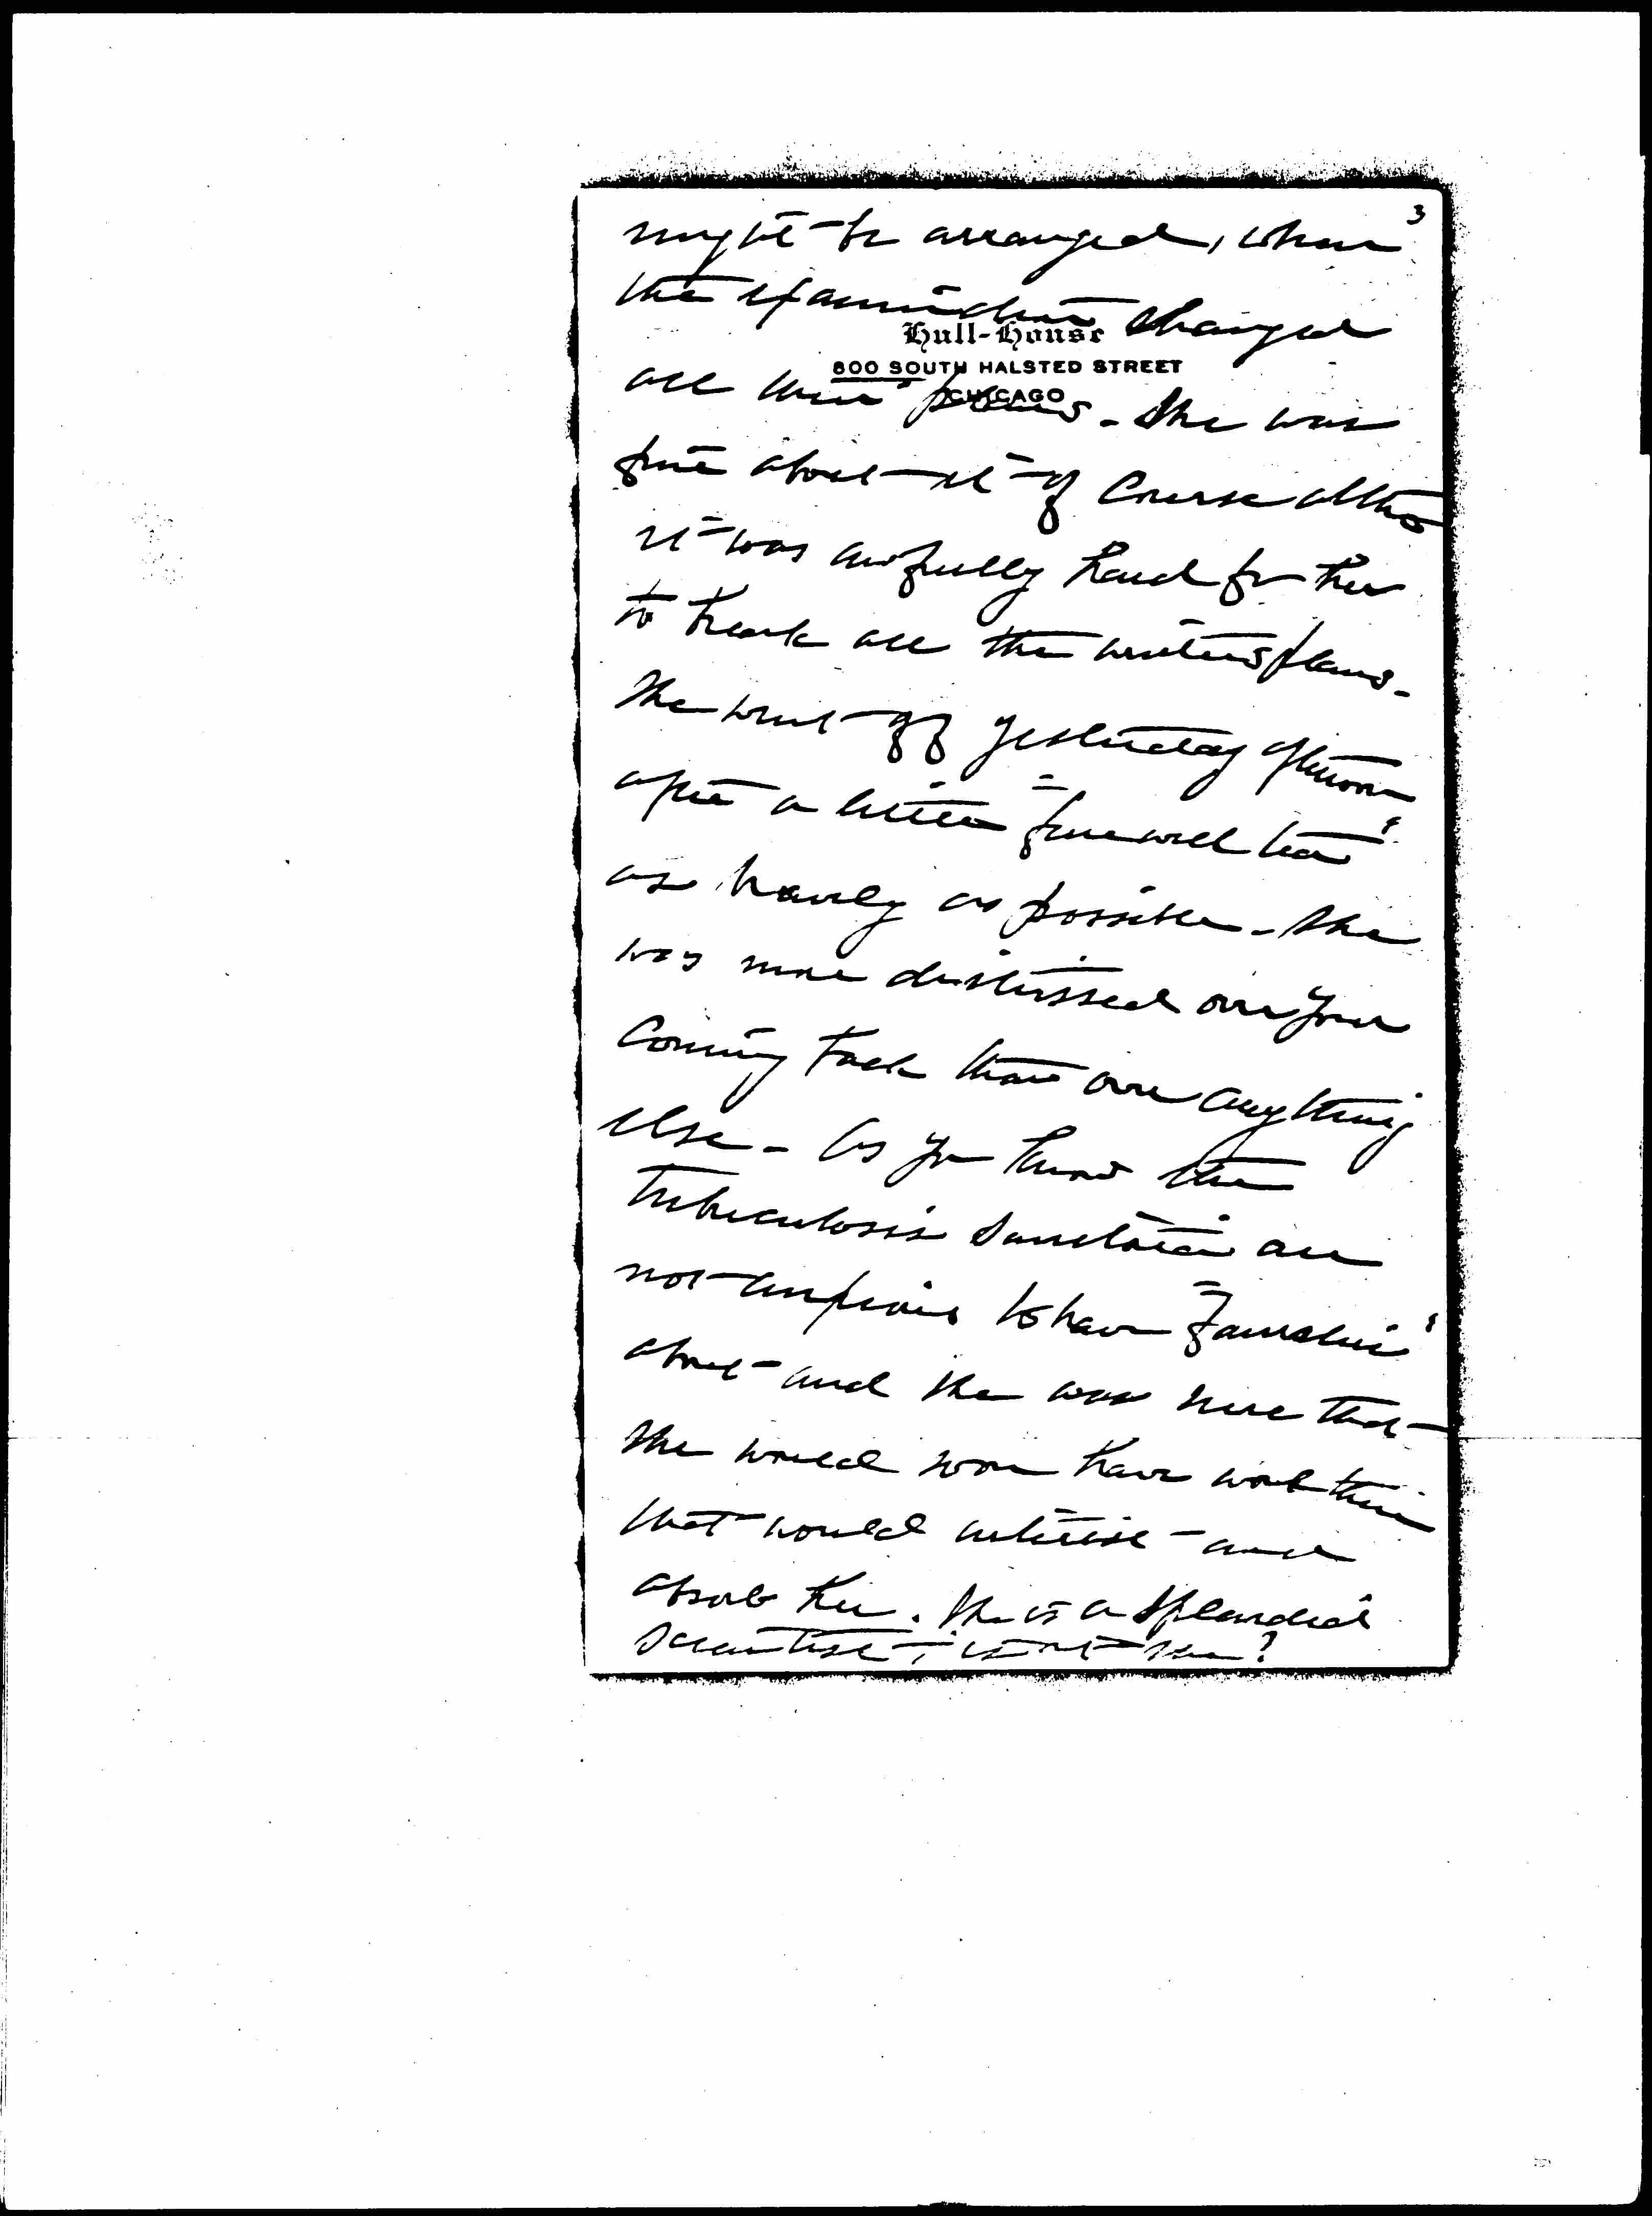 3
might be arranged, when
the examination changed
Hull-House
800 SOUTH HALSTED STREET
CHICAGO
all these plans - She was
fine about it of course altho
it was awfully hard for her
to break all the winters plans -
She went off yesterday afternoon
after a little "farewell tea"
as bravely as possible - She
was more distressed over your
coming back than over anything
else - As you know the
tuberculosis sanitaria are
not anxious to have "families"
about - and she was sure that
she would soon have work there
that would interest and
absorb her. She is a splendid
scientist, isn't she?